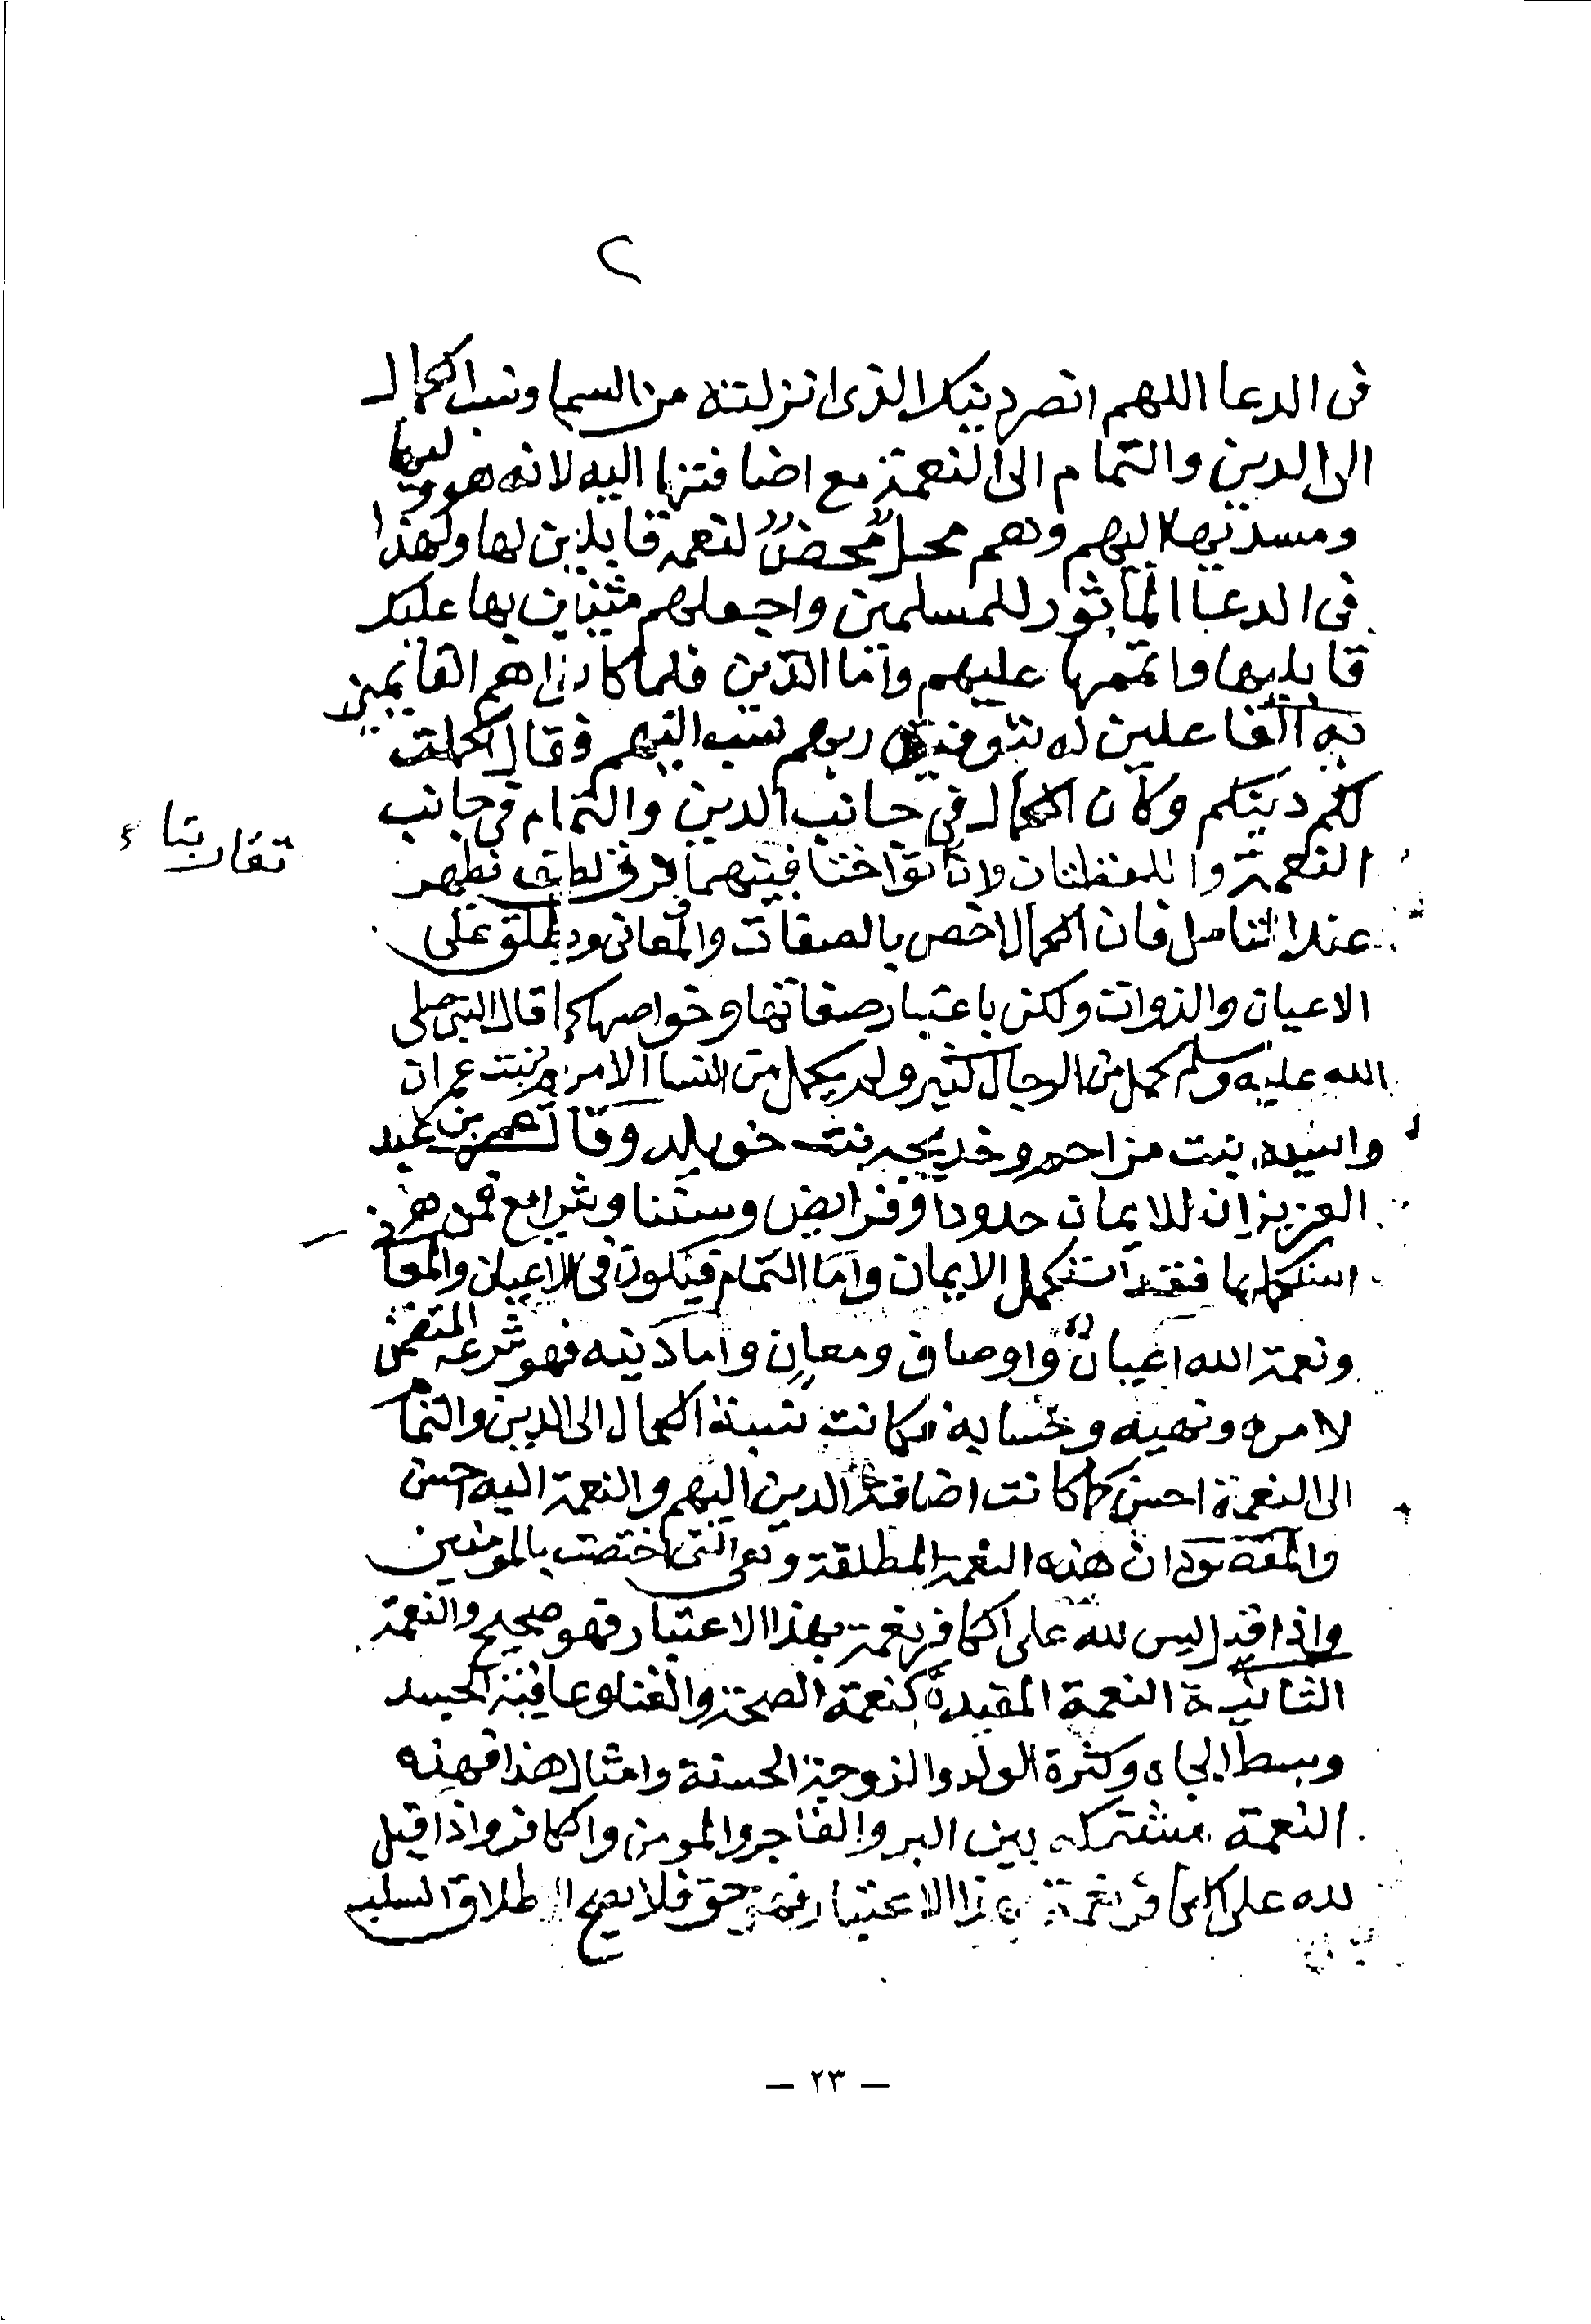 ٢
فى الدعا اللهم انصر دينك الذى انزلته من السما ونسب الكمال
الى الدين والتمام الى النعمة مع اضافتها اليه لانه هو وليها
ومسديها اليهم وهم محلٌ محضٌ لنعمه قابلين لها ولهذا
فى الدعا المأثور للمسلمين واجعلهم مثنين بها عليك
قابليها واتممها عليهم واما الدين فلما كانوا هم القايمين
به الفاعلين له بتوفيق ربهم نسبه اليهم فقال اكملت
لكم دينكم وكان الكمال فى جانب الدين والتمام فى جانب
النعمة واللفظتان وان تواختا فبينهما فرق لطيف يظهر
تقاربتا ء
عند التامل فان الكمال اخص بالصفات والمعانى ويطلق على
الاعيان والذوات ولكن باعتبار صفاتها وخواصها كما قال النبى صلى
الله عليه وسلم كمل من الرجال كثير ولم يكمل من النسا الا مريم بنت عمران
واسيه بنت مزاحم وخديجه بنت خويلد وقال عمر بن عبد
العزيز ان للايمان حدودا وفرايض وسننا وشرايع فمن
استكملها فقد استكمل الايمان واما التمام فيكون فى الاعيان والمعا
ونعمة الله اعيانٌ واوصاف ومعانٍ واما دينه فهو شرعه المتضمن
لامره ونهيه ومحابه فكانت نسبة الكمال الى الدين والتمام
الى النعمة احسن كما كانت اضافة الدين اليهم والنعمة اليه احسن
والمقصود ان هذه النعمة المطلقة وهى التى اختصت بالمومنين
واذا قيل ليس لله على الكافر نعمة بهذا الاعتبار فهو صحيح والنعمة
الثانية النعمة المقيدة كنعمة الصحة والغنا وعافية الجسد
وبسط الجاه وكثرة الولد والزوجة الحسنة وامثال هذا فهذه
النعمة مشتركه بين البر والفاجر والمومن والكافر واذا قيل
لله على الكافر نعمة بهذا الاعتبار فهو حق فلا يصح اطلاق السلب
— ٢٣ —